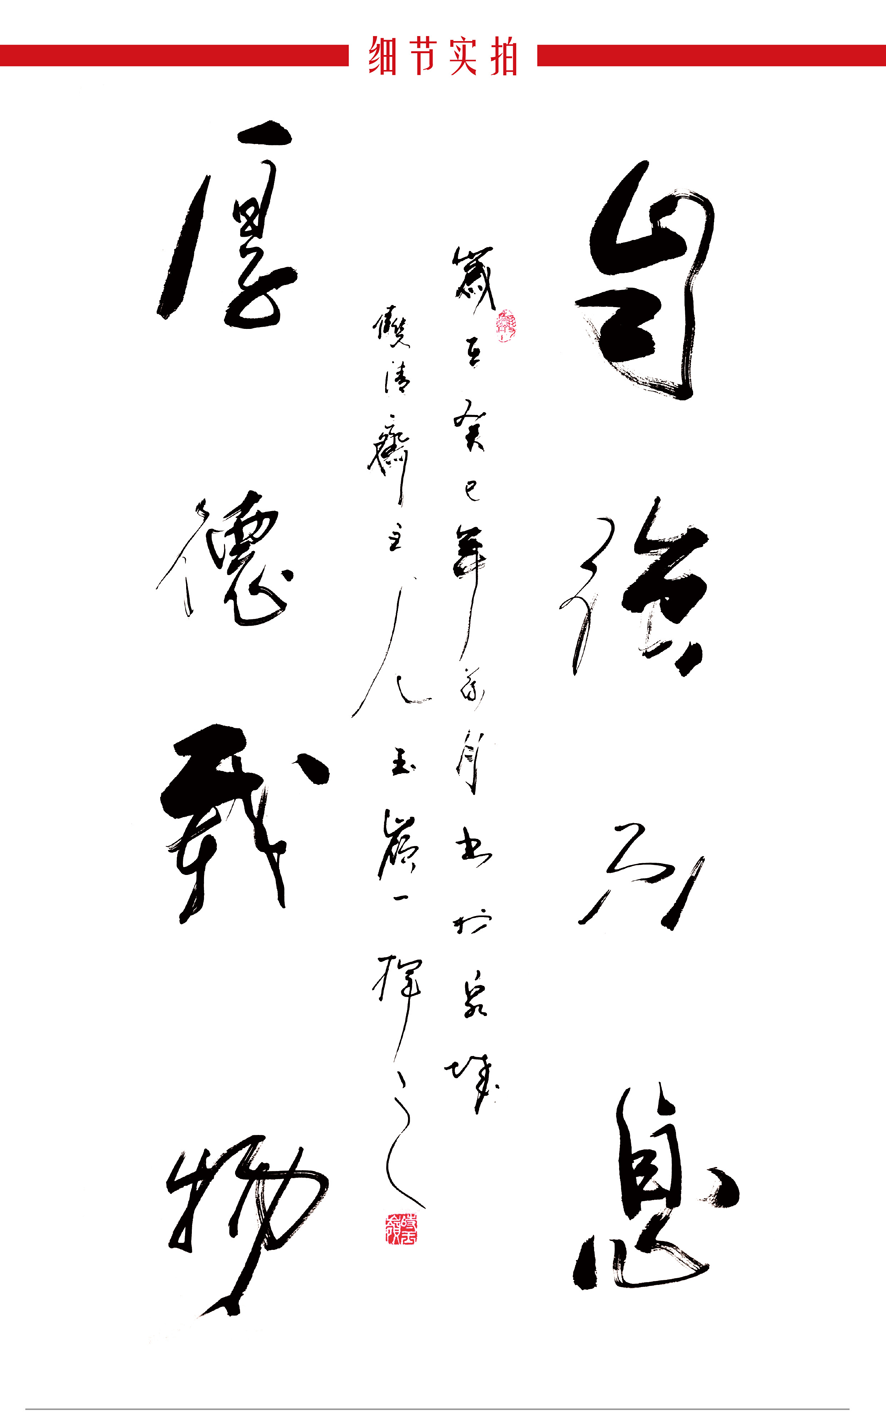 细节实拍
自强不息
厚德载物
岁在癸巳年
月书于泉城
清斋主人
玉岭一挥之